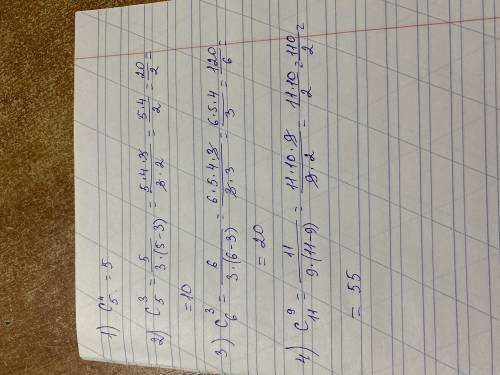 1) C₅⁴ = 5
2) C₅³ = 5 / 3·(5-3) = 5·4·3 / 3·2 = 5·4 / 2 = 20 / 2 =
= 10
3) C₆³ = 6 / 3·(6-3) = 6·5·4·3 / 3·3 = 6·5·4 / 3 = 120 / 6 =
= 20
4) C₁₁⁹ = 11 / 9·(11-9) = 11·10·9 / 9·2 = 11·10 / 2 = 110 / 2 =
= 55